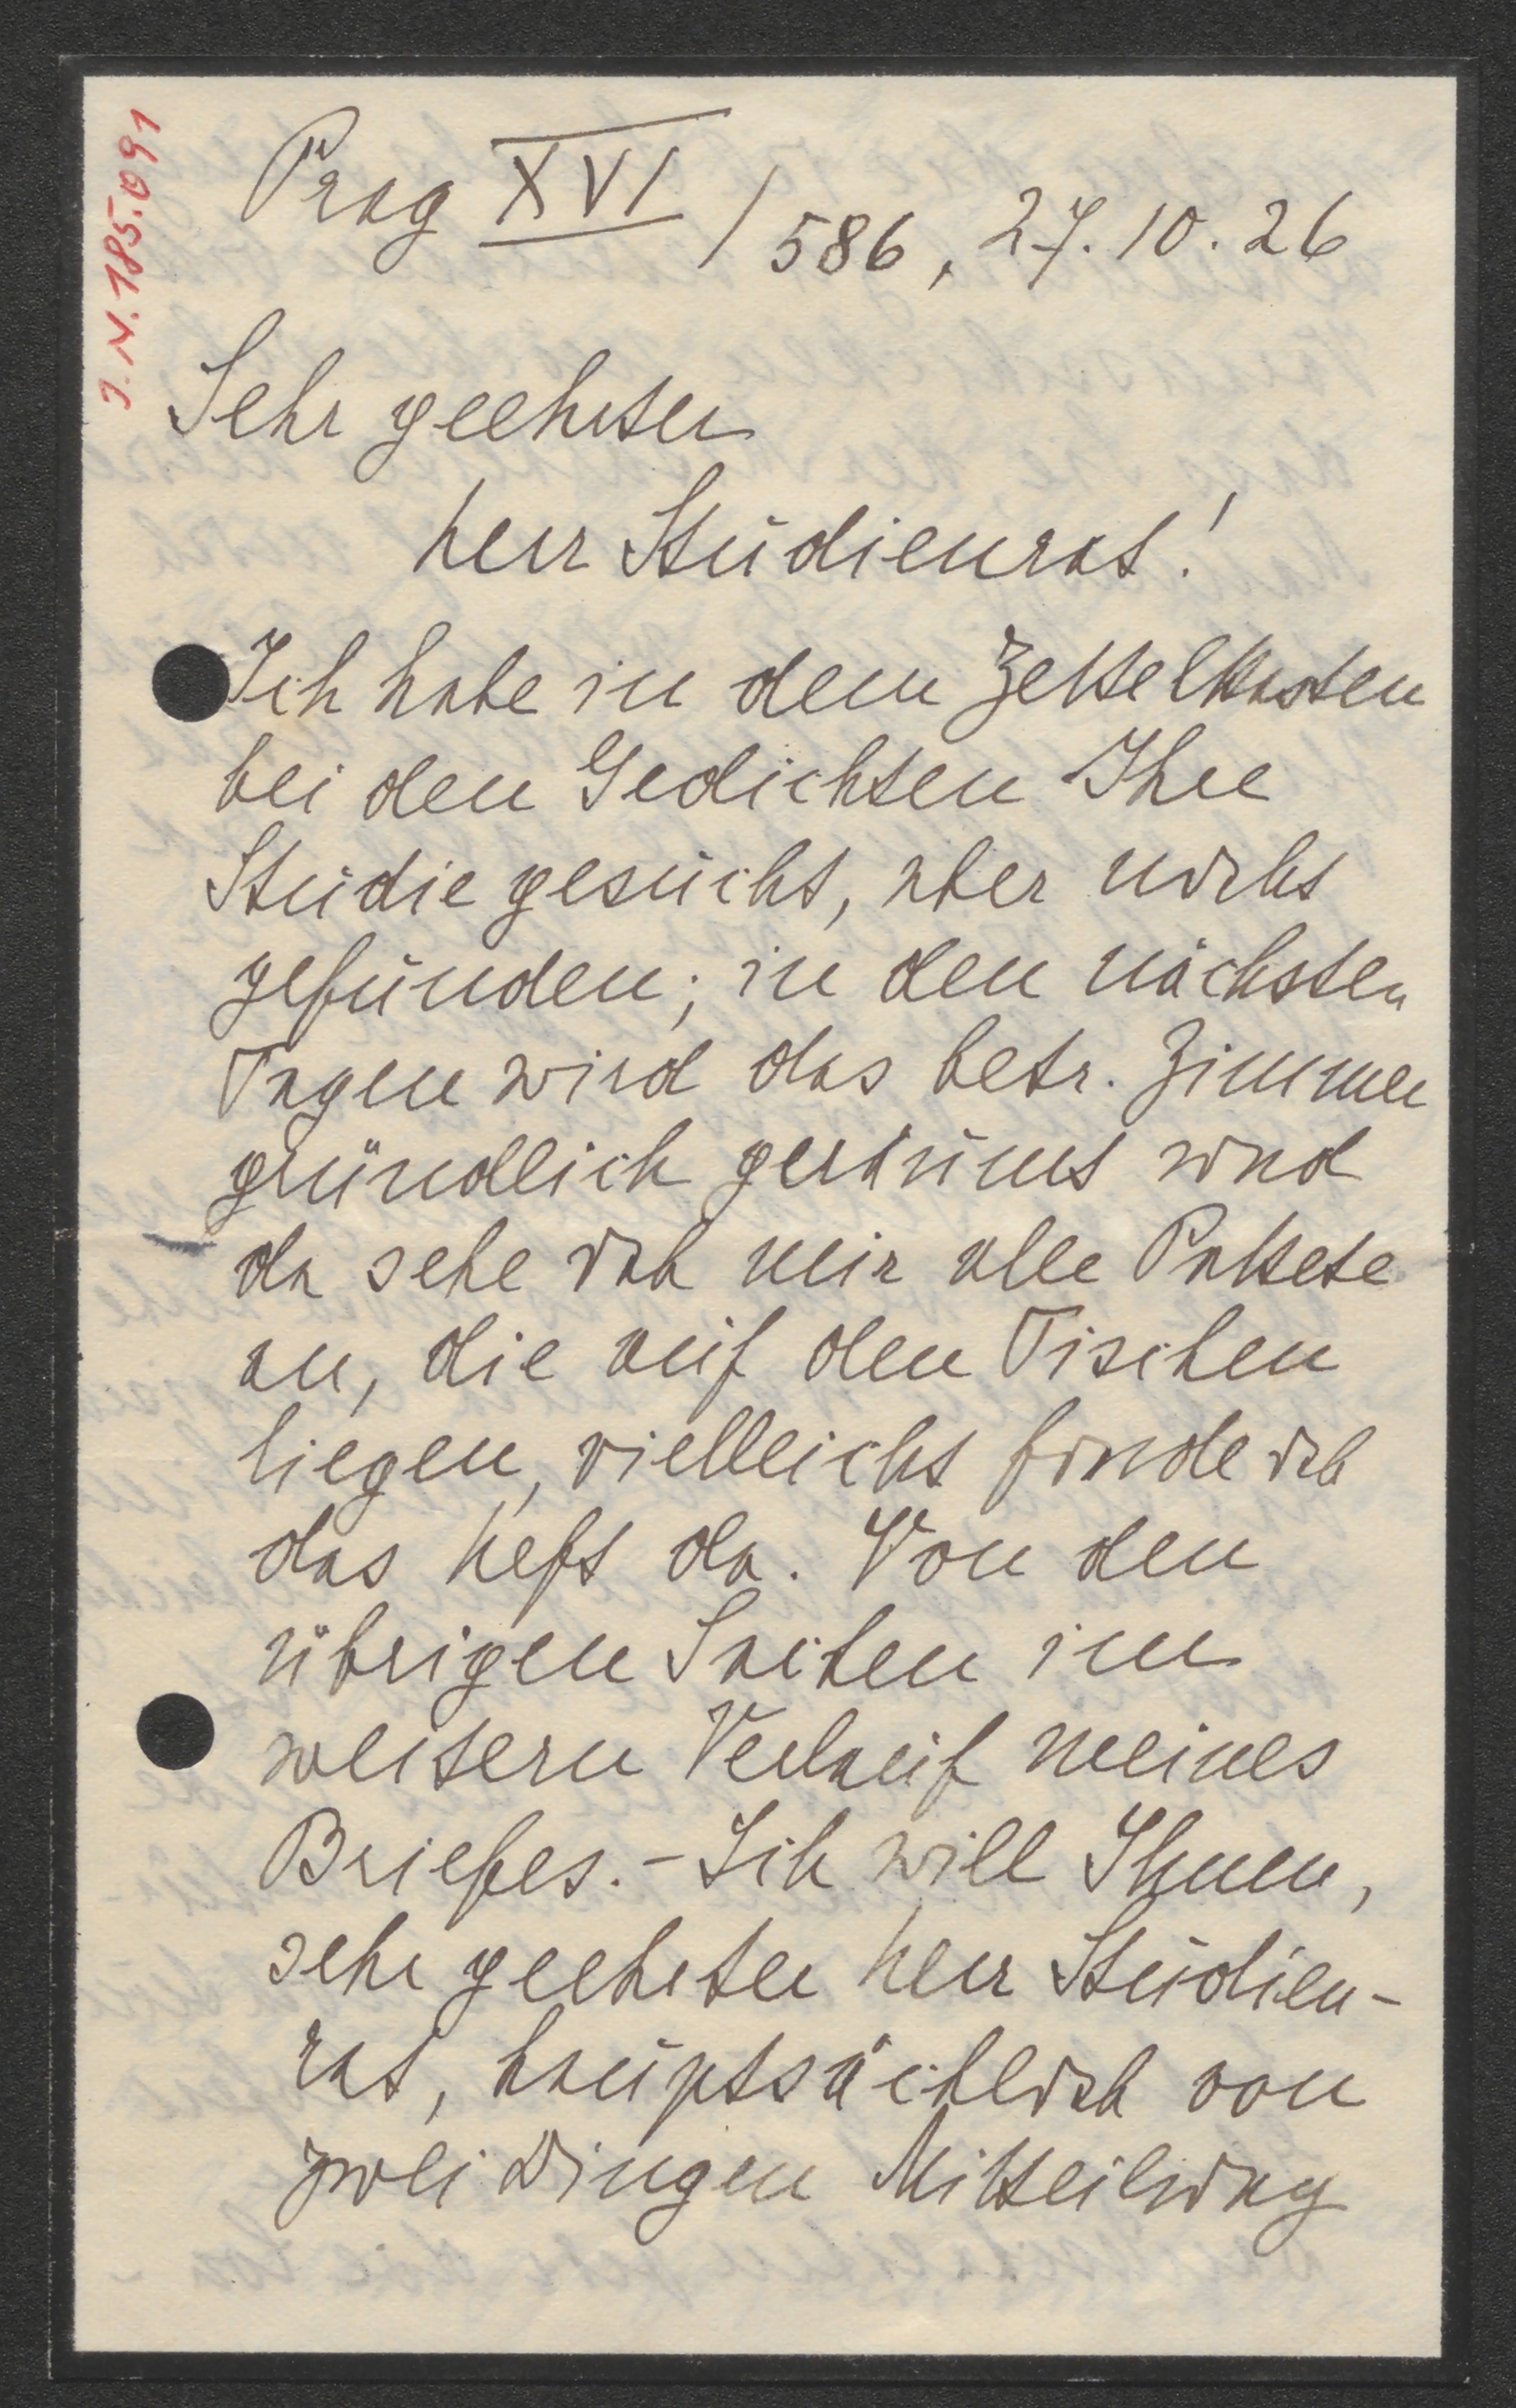 J. N. 185.091
Prag XVI / 586, 27. 10. 26
Sehr geehrter
Herr Studienrat!
Ich habe in dem Zettelkasten
bei den Gedichten Ihre
Studie gesucht, aber nicht
gefunden; in den nächsten
Tagen wird das betr. Zimmer
gründlich geräumt und
da sehe ich mir alle Pakete
an, die auf den Tischen
liegen, vielleicht finde ich
das Heft da. Von den
übrigen Sachen im
weitern Verlauf meines
Briefes. - Ich will Ihnen,
sehr geehrter Herr Studien-
rat, hauptsächlich von
zwei Dingen Mitteilung